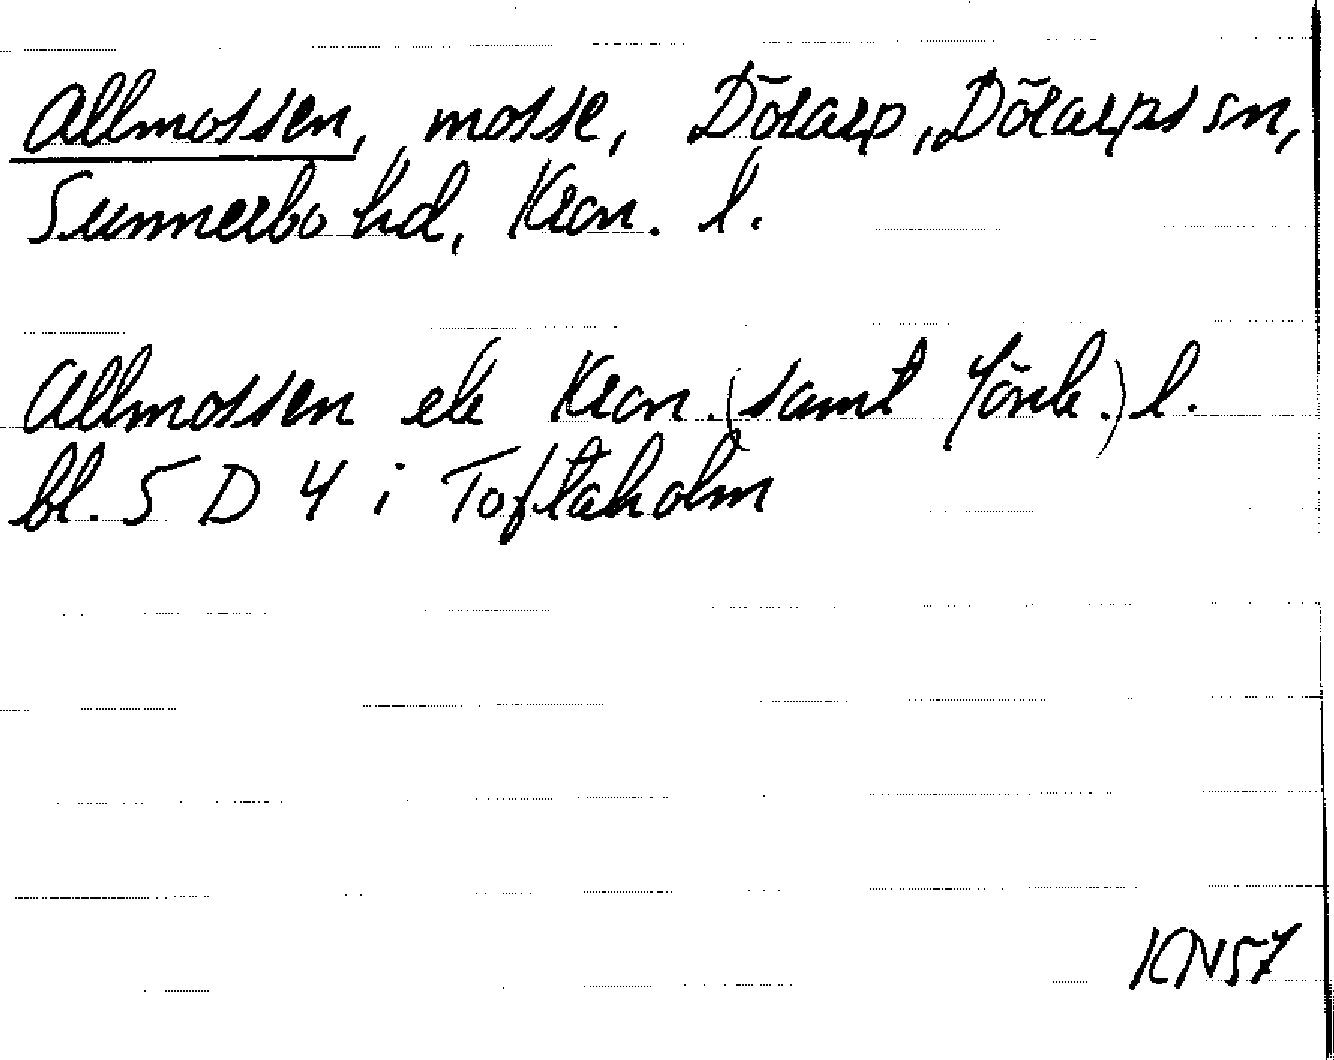 Allmossen, mosse, Dörarp, Dörarps sn,
Sunnerbo hd, Kron. l.
Allmossen ek Kron. (samt Jönk.) l.
bl. 5 D 4 i Toftaholm
KN57